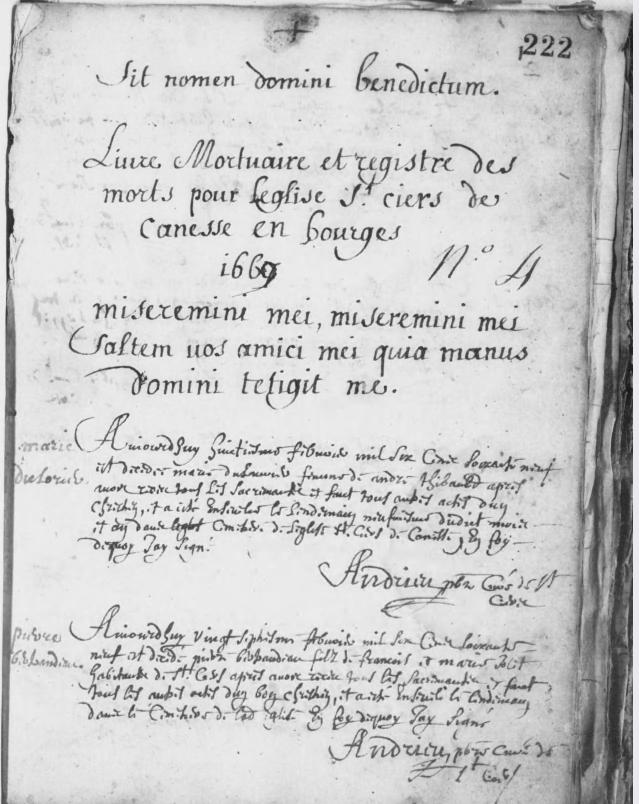 222
Sit nomen domini benedictum.
Livre Mortuaire et registre des
morts pour leglise St. ciers de
Canesse en bourges
1669
N.o 4
miseremini mei, miseremini mei
saltem uos amici mei quia manus
domini tetigit me.
marie
Aujourdhuy huictiesme febvrie mil six cens soixante neuf
est decedee marie femme de andre thibaud apres
avoir receu tous les sacremants et faict tous autres actes dun
chrestien, et a este ensevelie le lendemain neufviesme dudict mois
et an dans Cimitiere de leglise St. Ciers de Canesse, En foy
dequoy Jay signé
Andrieu pbre Curé de St
Ciers
pierre
Aujourdhuy vingt septiesme febvrie mil six cens soixante
neuf est decedé pierre filz de francois et marie
habitants de St. Ciers apres avoir receu tous les sacremants et faict
tous les autres actes dun bon chrestien, et a este enseveli le lendemain
dans le Cimitiere de lad. eglise En foy dequoy Jay signé
Andrieu, pbre Curé de
St Ciers